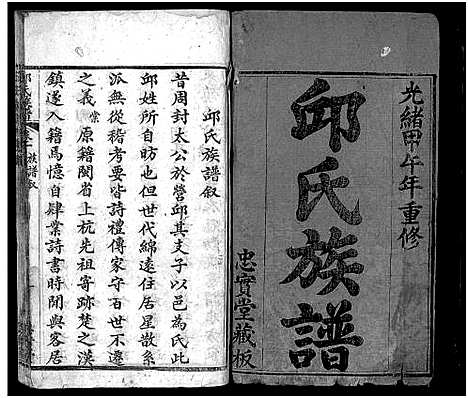 光緒甲午年重修
邱氏族譜
忠實堂藏板
邱氏族譜叙
昔周封太公於營邱其支子以邑為氏此
邱姓所自昉也但世代綿遠住居星散系
派無從稽考要皆詩禮傳家守百世不遷
之義棠原籍閩省上杭先祖寄跡楚之漢
鎮遂入籍焉憶自肆業詩書時閒與客居
族譜叙